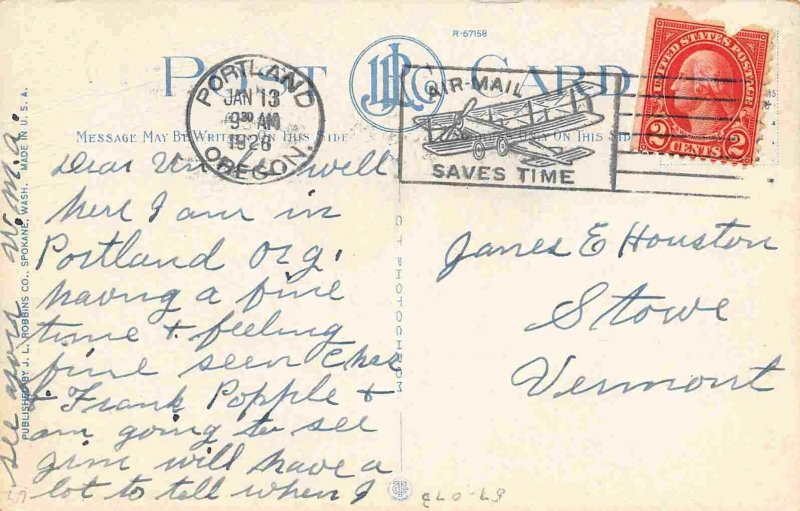 R-67158
POST CARD
JLRCO
PORTLAND
JAN 13
9 30 AM
1929
OREGON.
AIR-MAIL
SAVES TIME
UNITED STATES POSTAGE
2 CENTS 2
MESSAGE MAY BE WRITTEN ON THIS SIDE
ONLY ON THIS SIDE
Dear Uncle well
here I am in
Portland Org.
having a fine
time + feeling
fine seen Chas
& Frank Popple +
am going to see
Jim will have a
lot to tell when I
see you
W.M.A.
James E Houston
Stowe
Vermont
PUBLISHED BY J. L. ROBBINS CO., SPOKANE, WASH. MADE IN U. S. A.
C T PHOTOCHROM